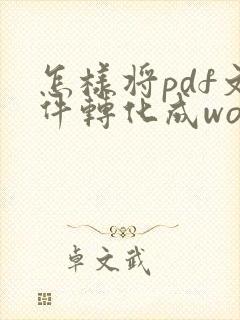 怎樣将pdf文
件轉化成wo
卓文武